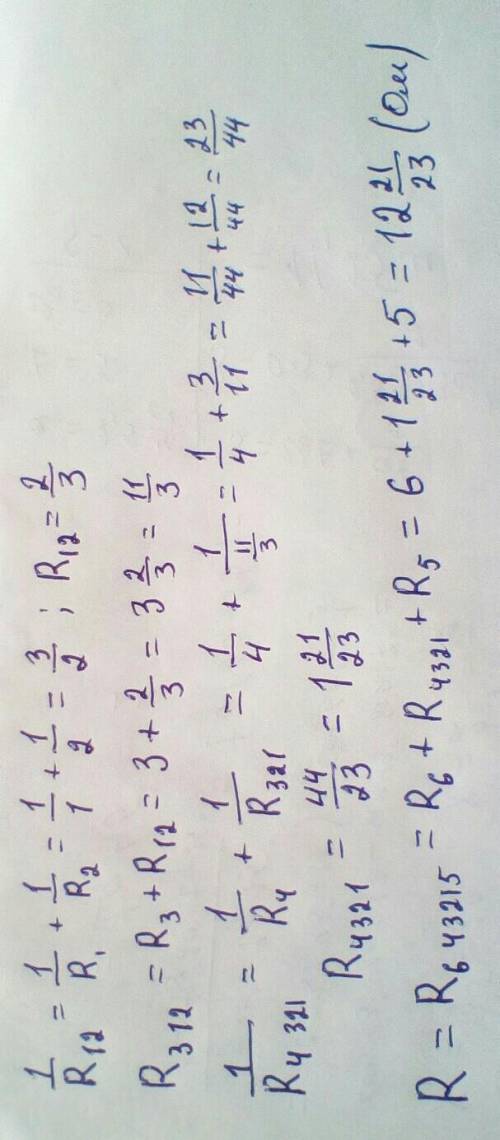 1/R₁₂ = 1/R₁ + 1/R₂ = 1/1 + 1/2 = 3/2 ; R₁₂ = 2/3
R₃₁₂ = R₃ + R₁₂ = 3 + 2/3 = 3 2/3 = 11/3
1/R₄₃₂₁ = 1/R₄ + 1/R₃₂₁ = 1/4 + 1/(11/3) = 1/4 + 3/11 = 11/44 + 12/44 = 23/44
R₄₃₂₁ = 44/23 = 1 21/23
R = R₆₄₃₂₁₅ = R₆ + R₄₃₂₁ + R₅ = 6 + 1 21/23 + 5 = 12 21/23 (Ом)